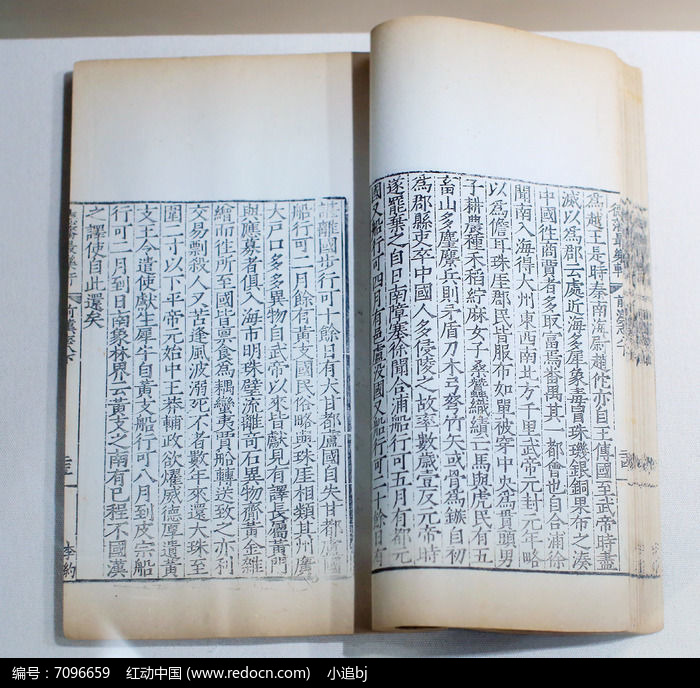 為越王是時秦南海尉趙佗亦自王傳國至武帝時盡
滅以為郡云處近海多犀象毒冒珠璣銀銅果布之湊
中國往商賈者多取富焉番禺其一都會也自合浦徐
聞南入海得大州東西南北方千里武帝元封元年略
以為儋耳珠厓郡民皆服布如單被穿中央為貫頭男
子耕農種禾稻紵麻女子桑蠶織績亡馬與虎民有五
畜山多麈麖兵則矛盾刀木弓弩竹矢或骨為鏃自初
為郡縣吏卒中國人多侵陵之故率數歲壹反元帝時
遂罷棄之自日南障塞徐聞合浦船行可五月有都元
國又船行可四月有邑盧沒國又船行可二十餘日有
諶離國步行可十餘日有夫甘都盧國自夫甘都盧國
船行可二月餘有黃支國民俗略與珠厓相類其州廣
大戶口多多異物自武帝以來皆獻見有譯長屬黃門
與應募者俱入海市明珠璧流離奇石異物齎黃金雜
繒而往所至國皆稟食為耦蠻夷賈船轉送致之亦利
交易剽殺人又苦逢風波溺死不者數年來還大珠至
圍二寸以下平帝元始中王莽輔政欲燿威德厚遺黃
支王令遣使獻生犀牛自黃支船行可八月到皮宗船
行可二月到日南象林界云黃支之南有已程不國漢
之譯使自此還矣
李約
编号：7096659 红动中国 (www.redocn.com) 小追bj